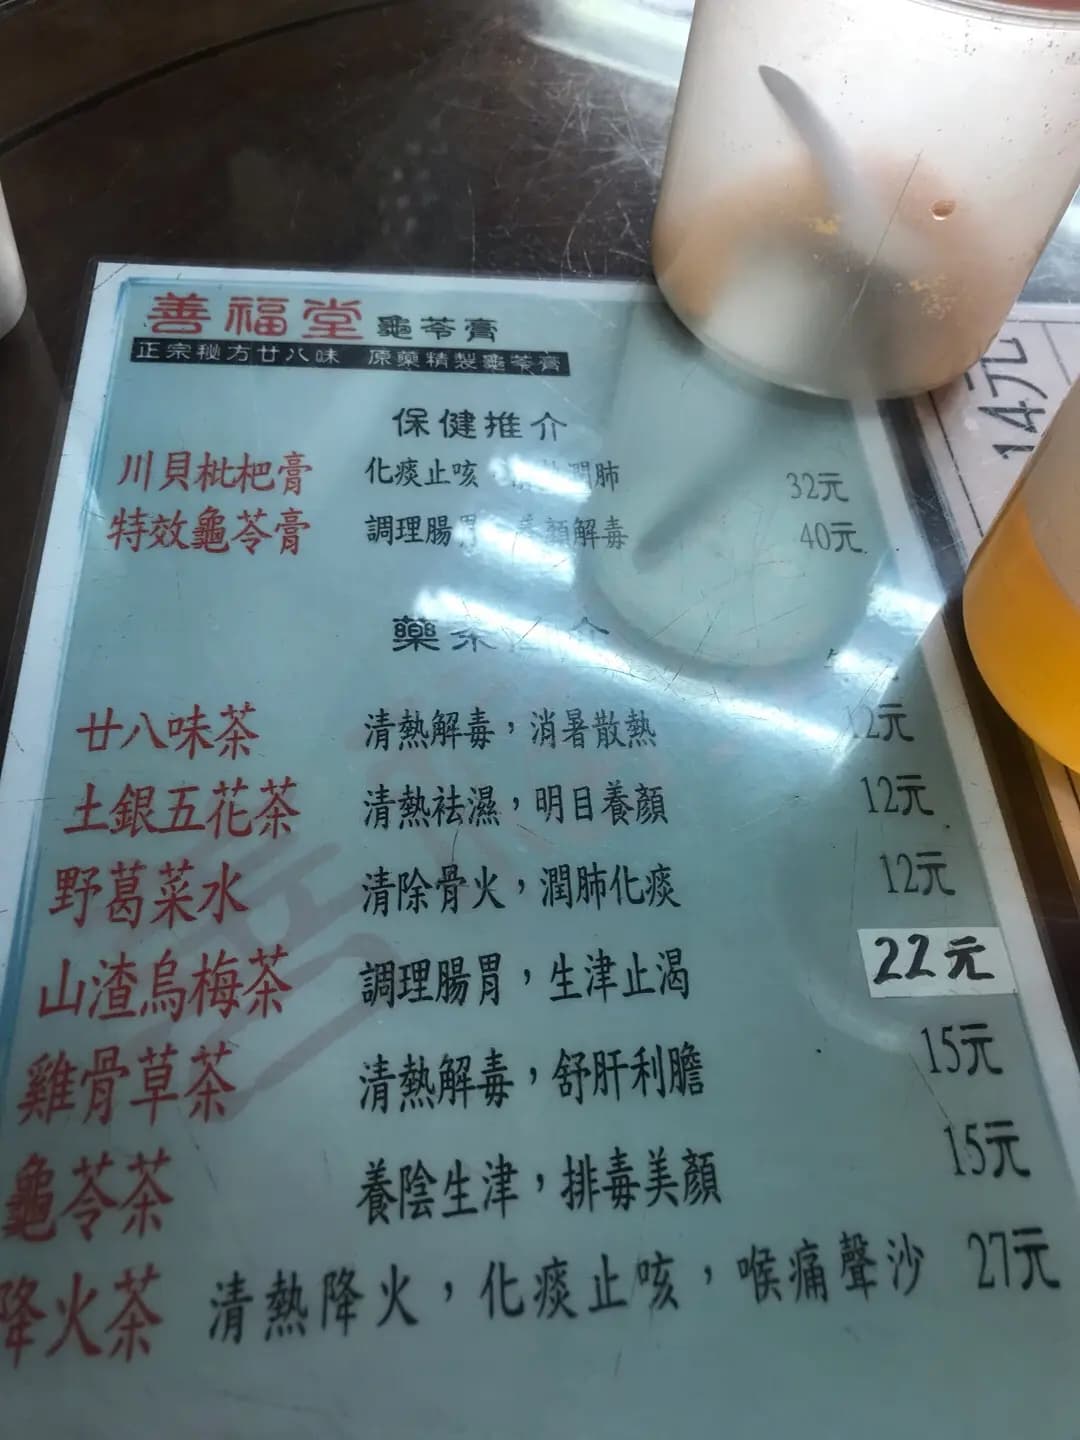 善福堂 龜苓膏
正宗秘方廿八味 原藥精製龜苓膏
保健推介
川貝枇杷膏 化痰止咳 潤肺 32元
特效龜苓膏 調理腸胃 養顏解毒 40元
藥茶 介
廿八味茶 清熱解毒，消暑散熱 12元
土銀五花茶 清熱祛濕，明目養顏 12元
野葛菜水 清除骨火，潤肺化痰 12元
山渣烏梅茶 調理腸胃，生津止渴 22元
雞骨草茶 清熱解毒，舒肝利膽 15元
龜苓茶 養陰生津，排毒美顏 15元
降火茶 清熱降火，化痰止咳，喉痛聲沙 27元
14元